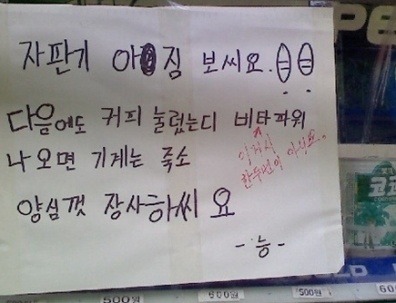 자판기 아짐 보씨요.
다음에도 커피 눌렀는디 비타파워
이거시
한두번이 아니요.
나오면 기계는 죽소
양심껏 장사하씨요
- 능 -
500원 600원 500원 600